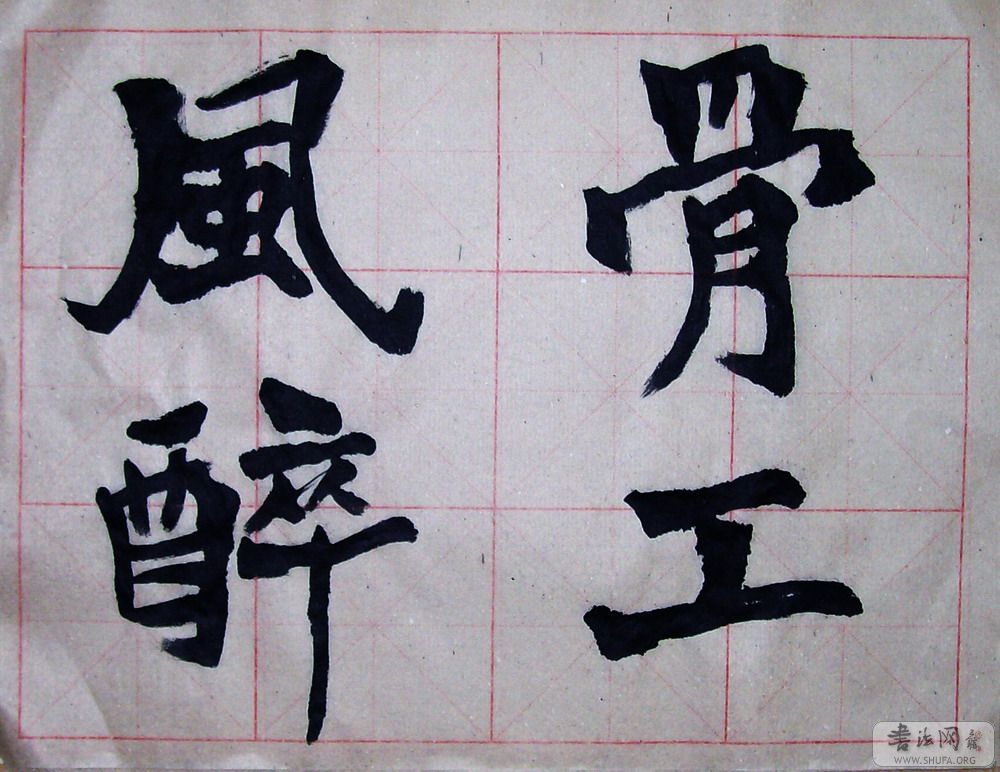 骨工
風醉
书法网
WWW.SHUFA.ORG